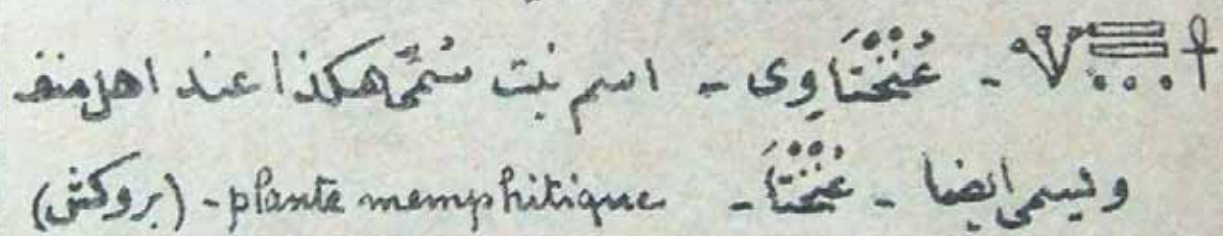 𓋹𓇾𓇾𓆰 - عُنْخْتَاوِى - اسم نبت سُمّى هكذا عند اهل منف
ويسمى ايضا - عُنْخْتَا - plante memphitique - (بروكش)